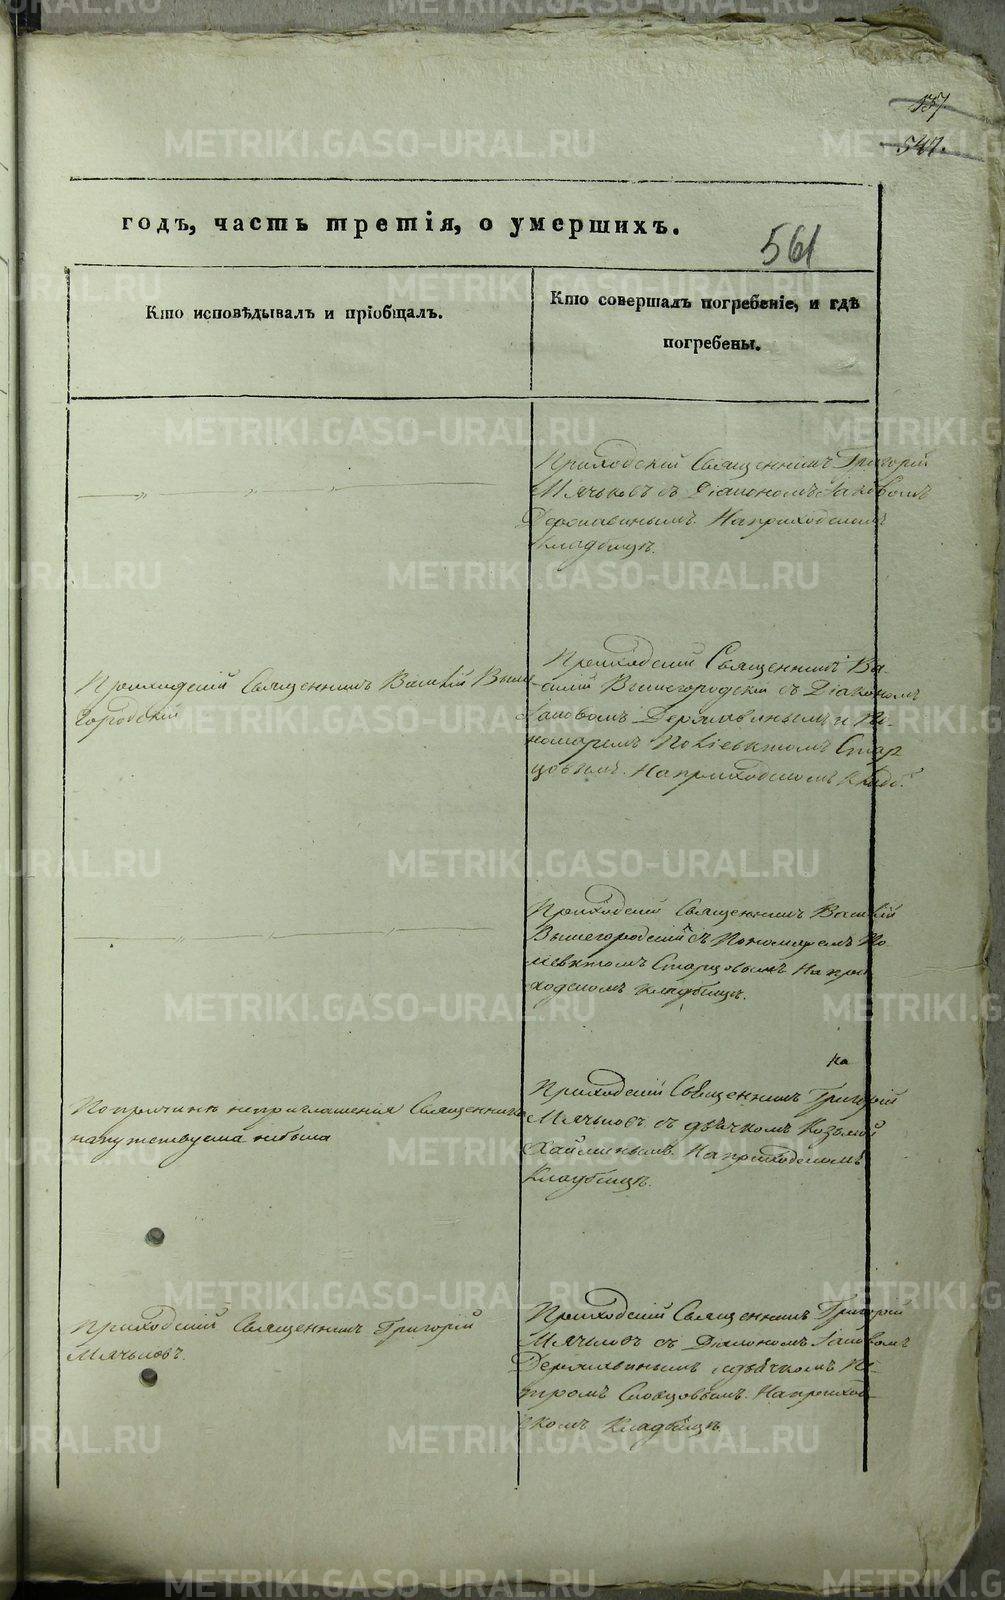 METRIKI.GASO-URAL.RU
537.
547.
годъ, часть третія, о умершихъ.
561
Кто исповѣдывалъ и пріобщалъ.
Кто совершалъ погребеніе, и гдѣ
погребены.
Приходскій Священникъ Григорій
Мячковъ съ Діакономъ Іаковомъ
Державинымъ. На приходскомъ
кладбищѣ.
Приходскій Священникъ Василій Выше
городскій
Приходскій Священникъ Ва-
силій Вышегородскій съ Діакономъ
Іаковомъ Державинымъ и По-
номаремъ Поліевктомъ Стар
цовымъ. На приходскомъ Кладб.
Приходскій Священникъ Василій
Вышегородскій съ Пономаремъ По
лиевктомъ Старцовымъ На при
ходскомъ кладбищѣ.
По причинѣ неприглашенія Священника
напутствуема небыла
на
Приходскій Священникъ Григорій
Мячковъ съ дьячкомъ Козьмой
Хайминымъ На приходскомъ
Кладбищѣ.
Приходскій Священникъ Григорій
Мячковъ.
Приходскій Священникъ Григорій
Мячковъ съ Діакономъ Іаковомъ
Державинымъ и дьячкомъ Пе-
тромъ Словцовымъ. На приход
скомъ Кладбищѣ